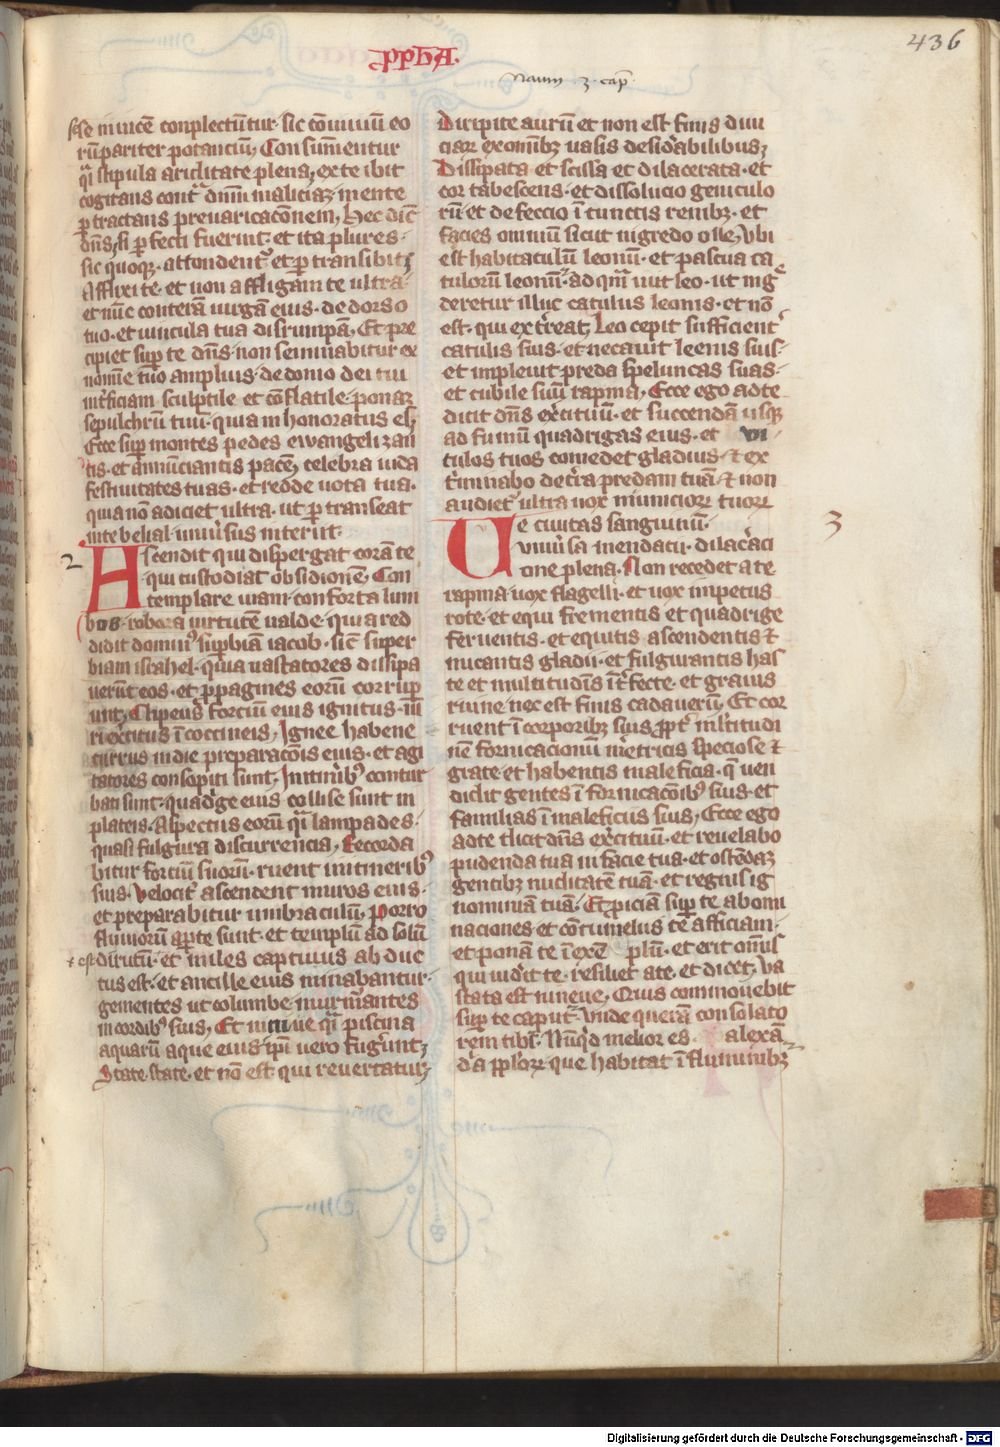 436
ꝓphA.
Naum 3 cap̄
sese inuicē conplectūtur· sic cōuiuiū eo
rū pariter potanciū, Consumentur
q̄i stipula ariditate plena, ex te ibit
cogitans cont̄ dnm̄ maliciaȝ mente
ꝑtractans preuaricacōnem, Hec dic̄
dns̄, si ꝑfecti fuerint· et ita plures·
sic quoqꝫ· attondent̄ et ꝑtransibit,
Afflixi te· et non affligam te ultra·
et nūc conterā uirgā eius· de dorso
tuo· et uincula tua disrumpā, Et pre
cipiet suꝑ te dns̄· non seminabitur ex
nomīe tuo amplius· de domo dei tui
int̄ficiam sculptile et cōflatile· ponaȝ
sepulchrū tuū· quia inhonoratus es,
Ecce suꝑ montes pedes ewangelizan
tis· et annūciantis pacē, celebra iuda
festiuitates tuas· et redde uota tua·
quia nō adiciet ultra· ut ꝑtranseat
in te belial· uniūsus interiit·
2
Ascendit qui dispergat corā te
qui custodiat obsidionē, Con
templare uiam· conforta lum
bos· robora uirtutē ualde· quia red
didit domin⁹ suꝑbiā iacob· sic̄ super
biam israhel· quia uastatores dissipa
uerūt eos· et ꝓpagines eorū corruꝑ
unt, Clipeus forciū eius ignitus· ui
ri ex̄citus ī coccineis, Ignee habene
currus in die preparacōis eius· et agi
tatores consopiti sunt, Initinīb⁹ contur
bati sunt· quadrige eius collise sunt in
plateis· Aspectus eorū q̄i lampades·
quasi fulgura discurrencia, Recorda
bitur forciū suorū· ruent in itinerib⁹
suis· velocit̄ ascendent muros eius·
et preparabitur umbraculū, Porro
fluuiorū aꝑte sunt· et templū ad solū
⁊ est dirutū· et miles captiuus abduc
tus est· et ancille eius minabantur·
gementes ut columbe· murmātes
in cordib⁹ suis, Et niniue q̄i piscina
aquarū aque eius· ip̄i uero fugerūt,
State state· et nō est qui reuertatur,
Diripite aurū et non est finis diui
ciaꝝ ex omībȝ uasis desid̄abilibus,
Dissipata et scissa et dilacerata· et
cor tabescens· et dissolucio geniculo
rū· et defeccio ī cunctis renibȝ· et
facies omniū sicut nigredo olle, Vbi
est habitaculū leonū· et pascua ca
tulorū leonū· ad qm̄ iuit leo· ut inḡ
deretur illuc catulus leonis· et nō
est· qui exterreat, Leo cepit sufficient̄
catulis suis· et necauit leenis suis·
et impleuit preda speluncas suas·
et cubile suū rapina, Ecce ego ad te
dicit dns̄ ex̄cituū· et succendā usqꝫ
ad fumū quadrigas eius· et ui
tulos tuos comedet gladius· ⁊ ex
t̄minabo de t̄ra predam tuā· ⁊ non
audiet̄ ultra uox nuncioꝝ tuoꝝ
3
Ve ciuitas sanguinū·
uniūsa mendacii· dilac̄aci
one plena· Non recedet a te
rapina· uox flagelli· et uox impetus
rote· et equi frementis et quadrige
feruentis· et equitis ascendentis ⁊
micantis gladii· et fulgurantis has
te et multitudīs īt̄fecte· et grauis
ruine nec est finis cadauerū, Et cor
ruent ī corporibȝ suis ꝓpt̄ mltitudi
nē fornicacionū m̄etricis speciose ⁊
grate· et habentis maleficia· q̄ uen
didit gentes ī fornicacōib⁹ suis· et
familias ī maleficiis suis, Ecce ego
ad te dicit dns̄ ex̄cituū· et reuelabo
pudenda tua in facie tua· et ostēdaȝ
gentibȝ nuditatē tuā· et regnis ig
nominiā tuā· Et ꝓiciā suꝑ te abomi
naciones et cōtumeliis te afficiam·
et ponā te ī exē plū· et erit omīs
qui uid̄it te· resiliet a te· et dicet, Va
stata est niniue, Quis commouebit
suꝑ te caput· Vnde querā consolato
rem tibi· Nūqd̄ melior es alexā
dr̄a ppl̄oꝝ· que habitat ī fluminibȝ
Digitalisierung gefördert durch die Deutsche Forschungsgemeinschaft - DFG